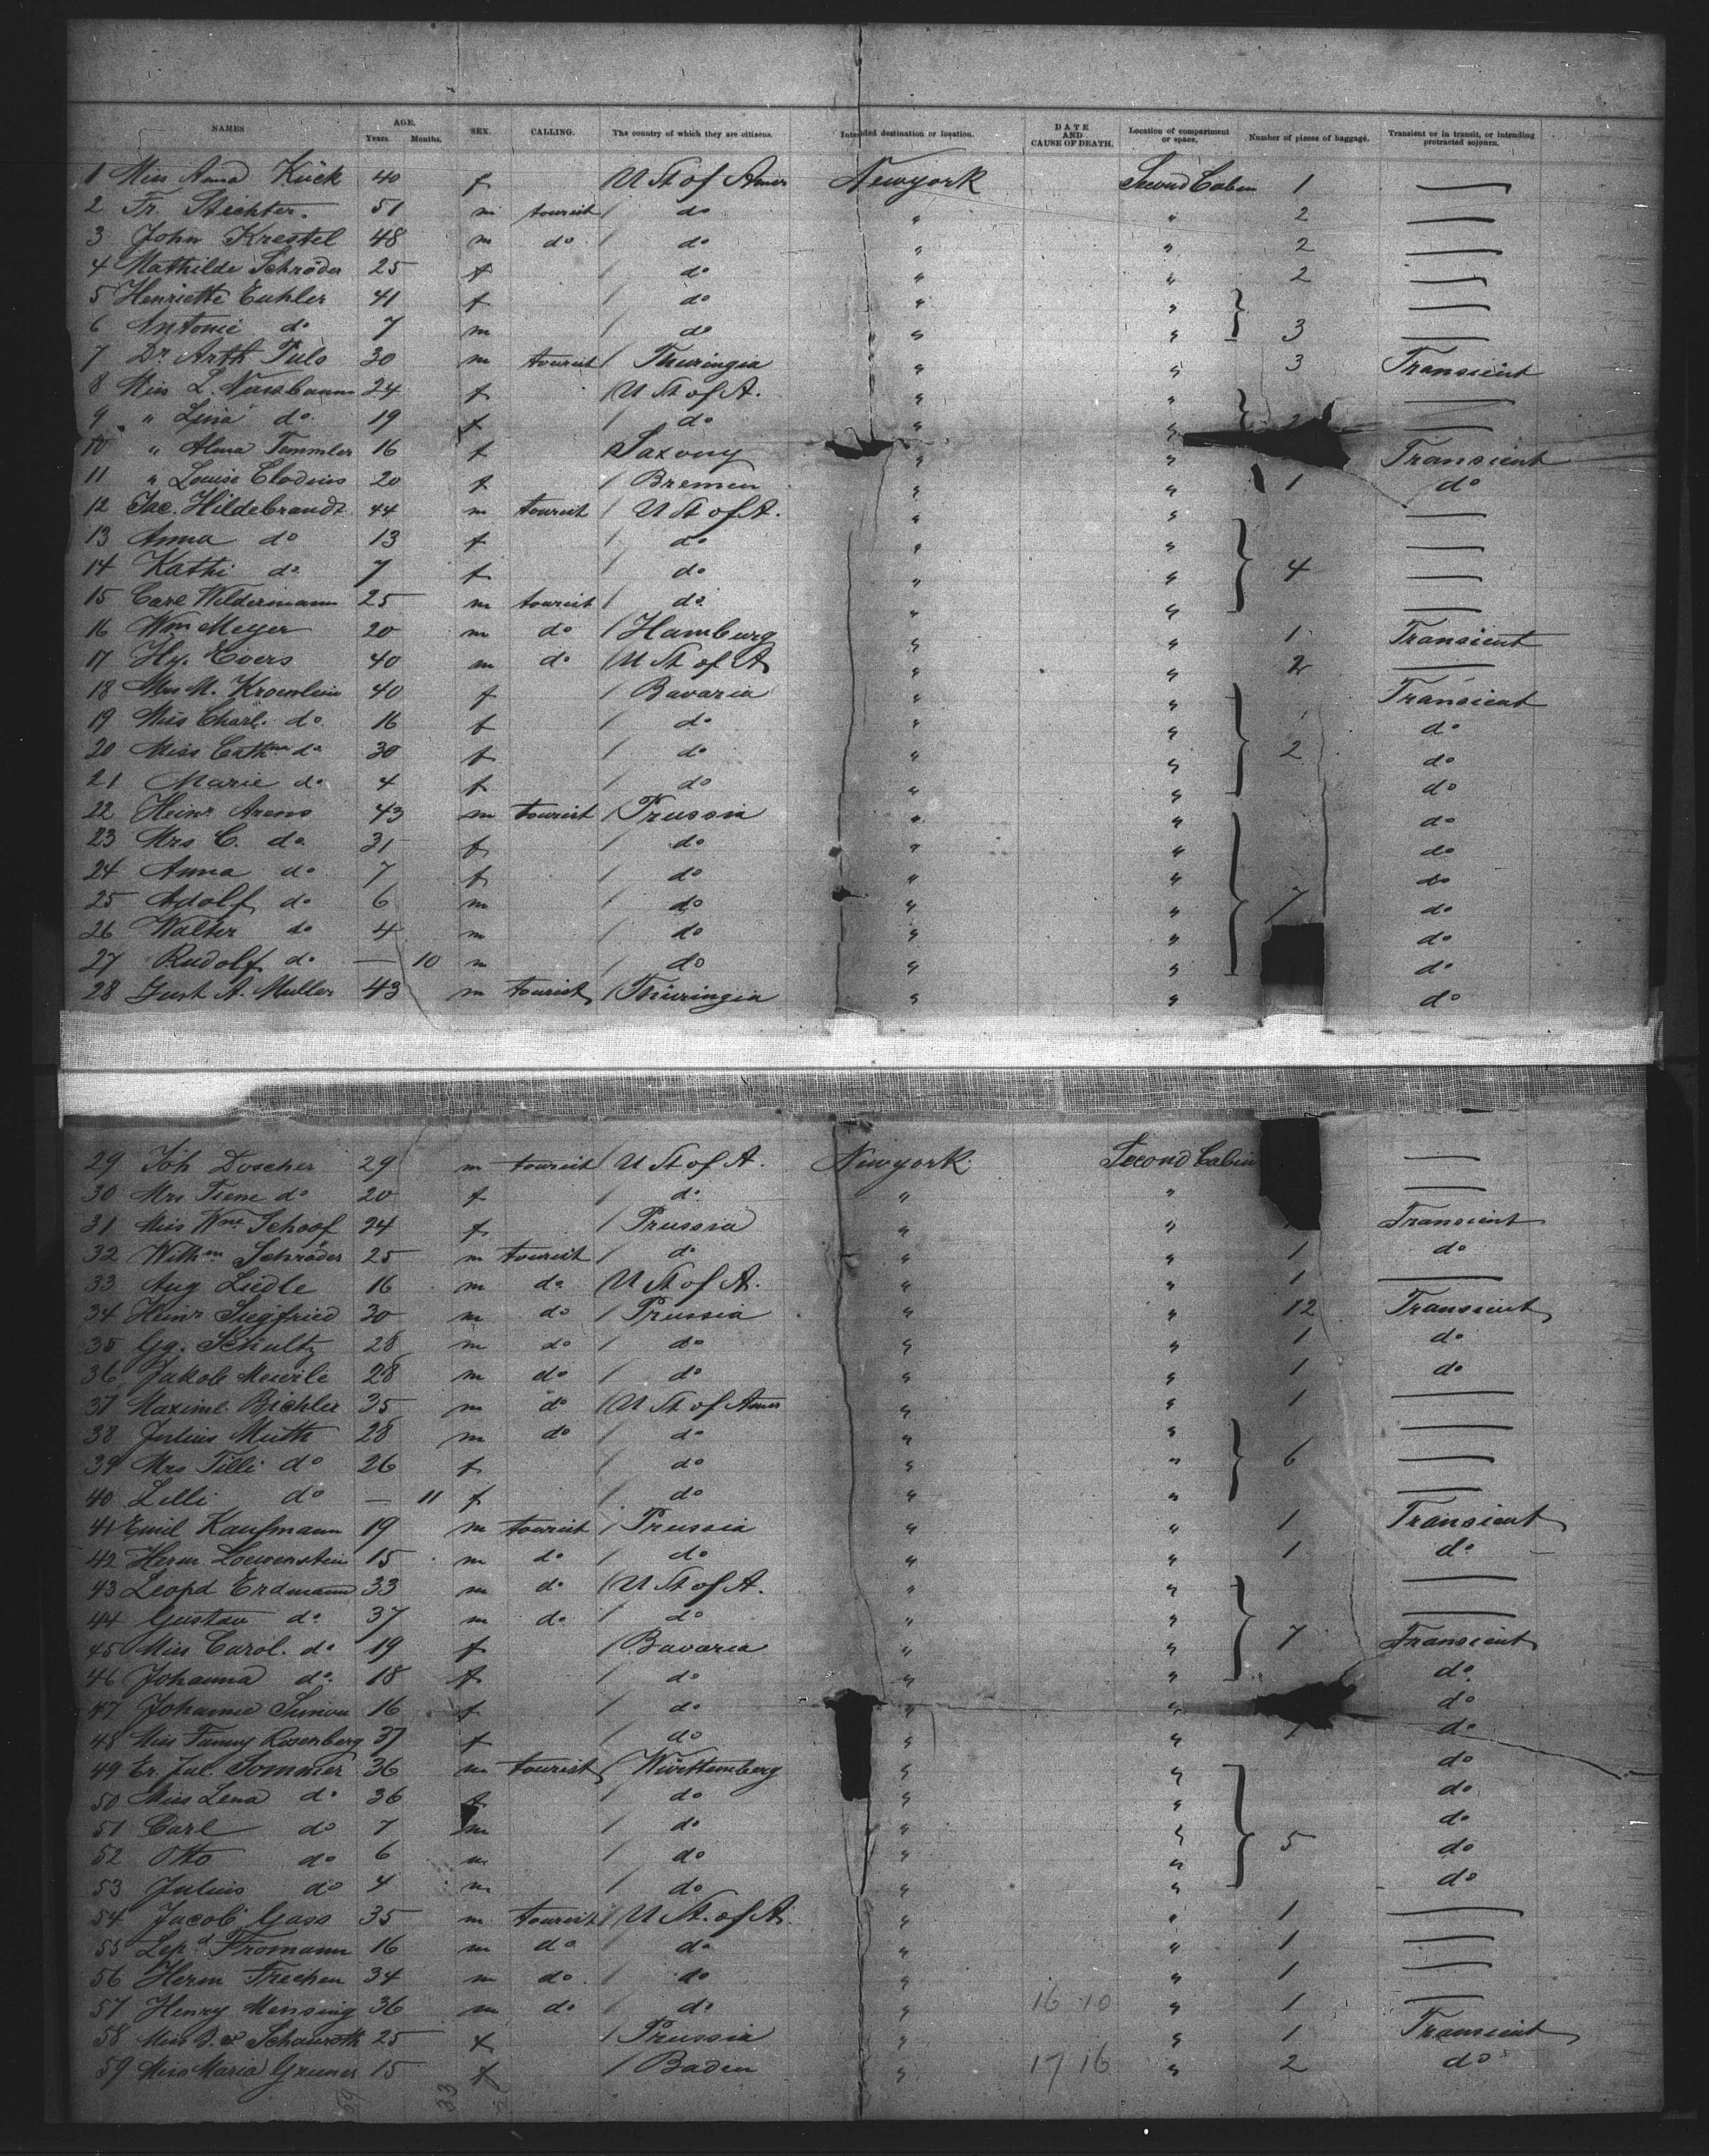 NAMES AGE. Years. Months. SEX. CALLING. The country of which they are citizens. Intended destination or location. DATE AND CAUSE OF DEATH. Location of compartment or space. Number of pieces of baggage. Transient or in transit, or intending protracted sojourn.
1 Miss Anna Kück 40 f U St of Amer Newyork Second Cabin 1 —
2 Fr. Stichter. 51 m tourist / do " " 2 —
3 John Krestel 48 m do / do " " 2 —
4 Mathilde Schröder 25 f / do " " 2 —
5 Henriette Euhler 41 f / do " " —
6 Antonie do 7 m / do " " 3 —
7 Dr Arth Puls 30 m tourist / Thuringia " " 3 Transient
8 Miss L. Nussbaum 24 f / U St of A. " " —
9 " Lina do. 19 f / do " " —
10 " Alma Temmler 16 f Saxony " " Transient
11 " Louise Clodius 20 f / Bremen " " 1 do
12 Jac. Hildebrandt 44 m tourist / U St of A. " " —
13 Anna do 13 f / do " " —
14 Kathi do. 7 f / do " " 4 —
15 Carl Wildermann 25 m tourist / do. " " —
16 Wm Meyer 20 m do / Hamburg " " 1 Transient
17 Hy. Evers 40 m do / U St of A " " 2 —
18 Mrs M. Kroenlein 40 f / Bavaria " " Transient
19 Miss Charl. do 16 f / do " " do
20 Miss Cathne do 30 f / do " " 2 do
21 Marie do 4 f / do " " do
22 Heinr Arens 43 m tourist / Prussia " " do
23 Mrs C. do. 31 f / do " " do
24 Anna do 7 f / do " " do
25 Adolf do 6 m / do " " 7 do
26 Walter do 4 m / do " " do
27 Rudolf do — 10 m / do " " do
28 Gust A. Muller 43 m tourist / Thüringia " " do
29 Joh Doscher 29 m tourist / U St of A. Newyork Second Cabin —
30 Mrs Tiene do 20 f / do. " " —
31 Miss Wne Schoof 24 f / Prussia " " Transient
32 Wilhm Schröder 25 m tourist / do " " 1 do
33 Aug Liedle 16 m do U St of A. " " 1 —
34 Heinr Siegfried 30 m do / Prussia " " 12 Transient
35 Gg. Schultz 28 m do / do " " 1 do
36 Jakob 28 m do / do " " 1 do
37 Maximl. Bichler 35 m do / U St of Amer " " 1 —
38 Julius Muth 28 m do / do " " —
39 Mrs Tilli do 26 f / do " " 6 —
40 Lilli do — 11 f / do " " —
41 Emil Kaufmann 19 m tourist / Prussia " " 1 Transient
42 Herm Loewenstein 15 m do / do " " 1 do
43 Leopd Erdmann 33 m do / U St of A. " " —
44 Gustav do. 37 m do / do " " —
45 Miss Carol. do 19 f / Bavaria " " 7 Transient
46 Johanna do. 18 f / do " " do
47 Johanna Simon 16 f / do " " do
48 Miss Fanny Rosenberg 37 f / do " " 1 do
49 Er. Jul. Sommer 36 m tourist / Württemberg " " do
50 Miss Lena do 36 f / do " " do
51 Carl do 7 m / do " " do
52 Otto do 6 m / do " " 5 do
53 Julius do 4 m / do " " do
54 Jacob Gass 35 m tourist / U St. of A. " " 1 —
55 Lepd Fromann 16 m do / do " " 1 —
56 Herm Frechen 34 m do / do " " 1 —
57 Henry Mensing 36 m do / do " 16 10 " 1 —
58 Miss B. v. Schauroth 25 f / Prussia " " 1 Transient
59 Miss Maria Gruner 15 f / Baden " 17 16 " 2 do
59 33